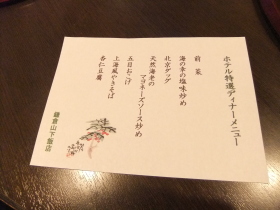 ホテル特選ディナーメニュー
前菜
海の幸の塩味炒め
北京ダック
天然海老の
マヨネーズソース炒め
五目おこげ
上海風やきそば
杏仁豆腐
鎌倉山下飯店